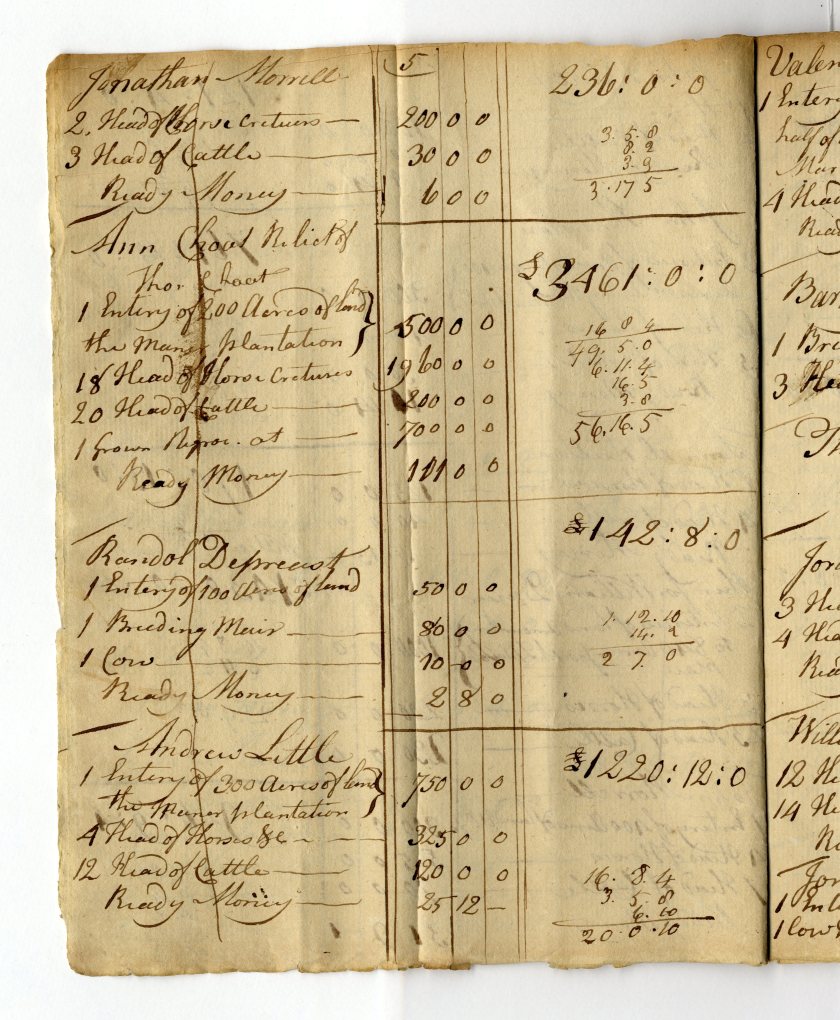 5
Jonathan Morrell 236: 0 : 0
2 Head of Horse creturs 200 0 0
3 Head of Cattle 30 0 0
Ready Money 6 0 0
3. 5. 8
8. 2
3. 9
3. 17 5
Ann Choat Relict of
Thos Choat £3461: 0 : 0
1 Entery of 200 Acres of land
the Maner plantation 500 0 0
18 Head of Horse cretures 1960 0 0
20 Head of Cattle 200 0 0
1 Grown Negroe at 700 0 0
Ready Money 101 0 0
16 8 4
49. 5. 0
6. 11. 4
16. 5
3. 8
56. 16. 5
£142: 8: 0
Randol Depreast
1 Entery of 100 Acres of land 50 0 0
1 Breeding Meir 80 0 0
1 Cow 10 0 0
Ready Money 2 8 0
1. 12. 10
14. 2
2 7. 0
Andrew Little £1220: 12: 0
1 Entery of 300 Acres of land
the Maner plantation 750 0 0
4 Head of Horses &c 325 0 0
12 Head of Cattle 120 0 0
Ready Money 25 12 –
16. 8 4
3. 5. 8
6. 10
20. 0. 10
Valen
1 Enter
half of
Mar
4 Head
Read
Bar
1 Br
3 He
Th
Jor
3 He
4 Hea
Rea
Will
12 He
14 He
Re
Jon
1 Ent
1 Cow